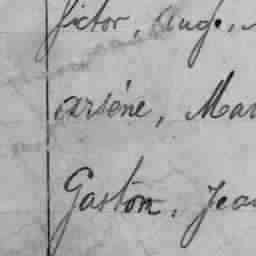 fictor, Ange,
arsène, Mar
Gaston, Jea